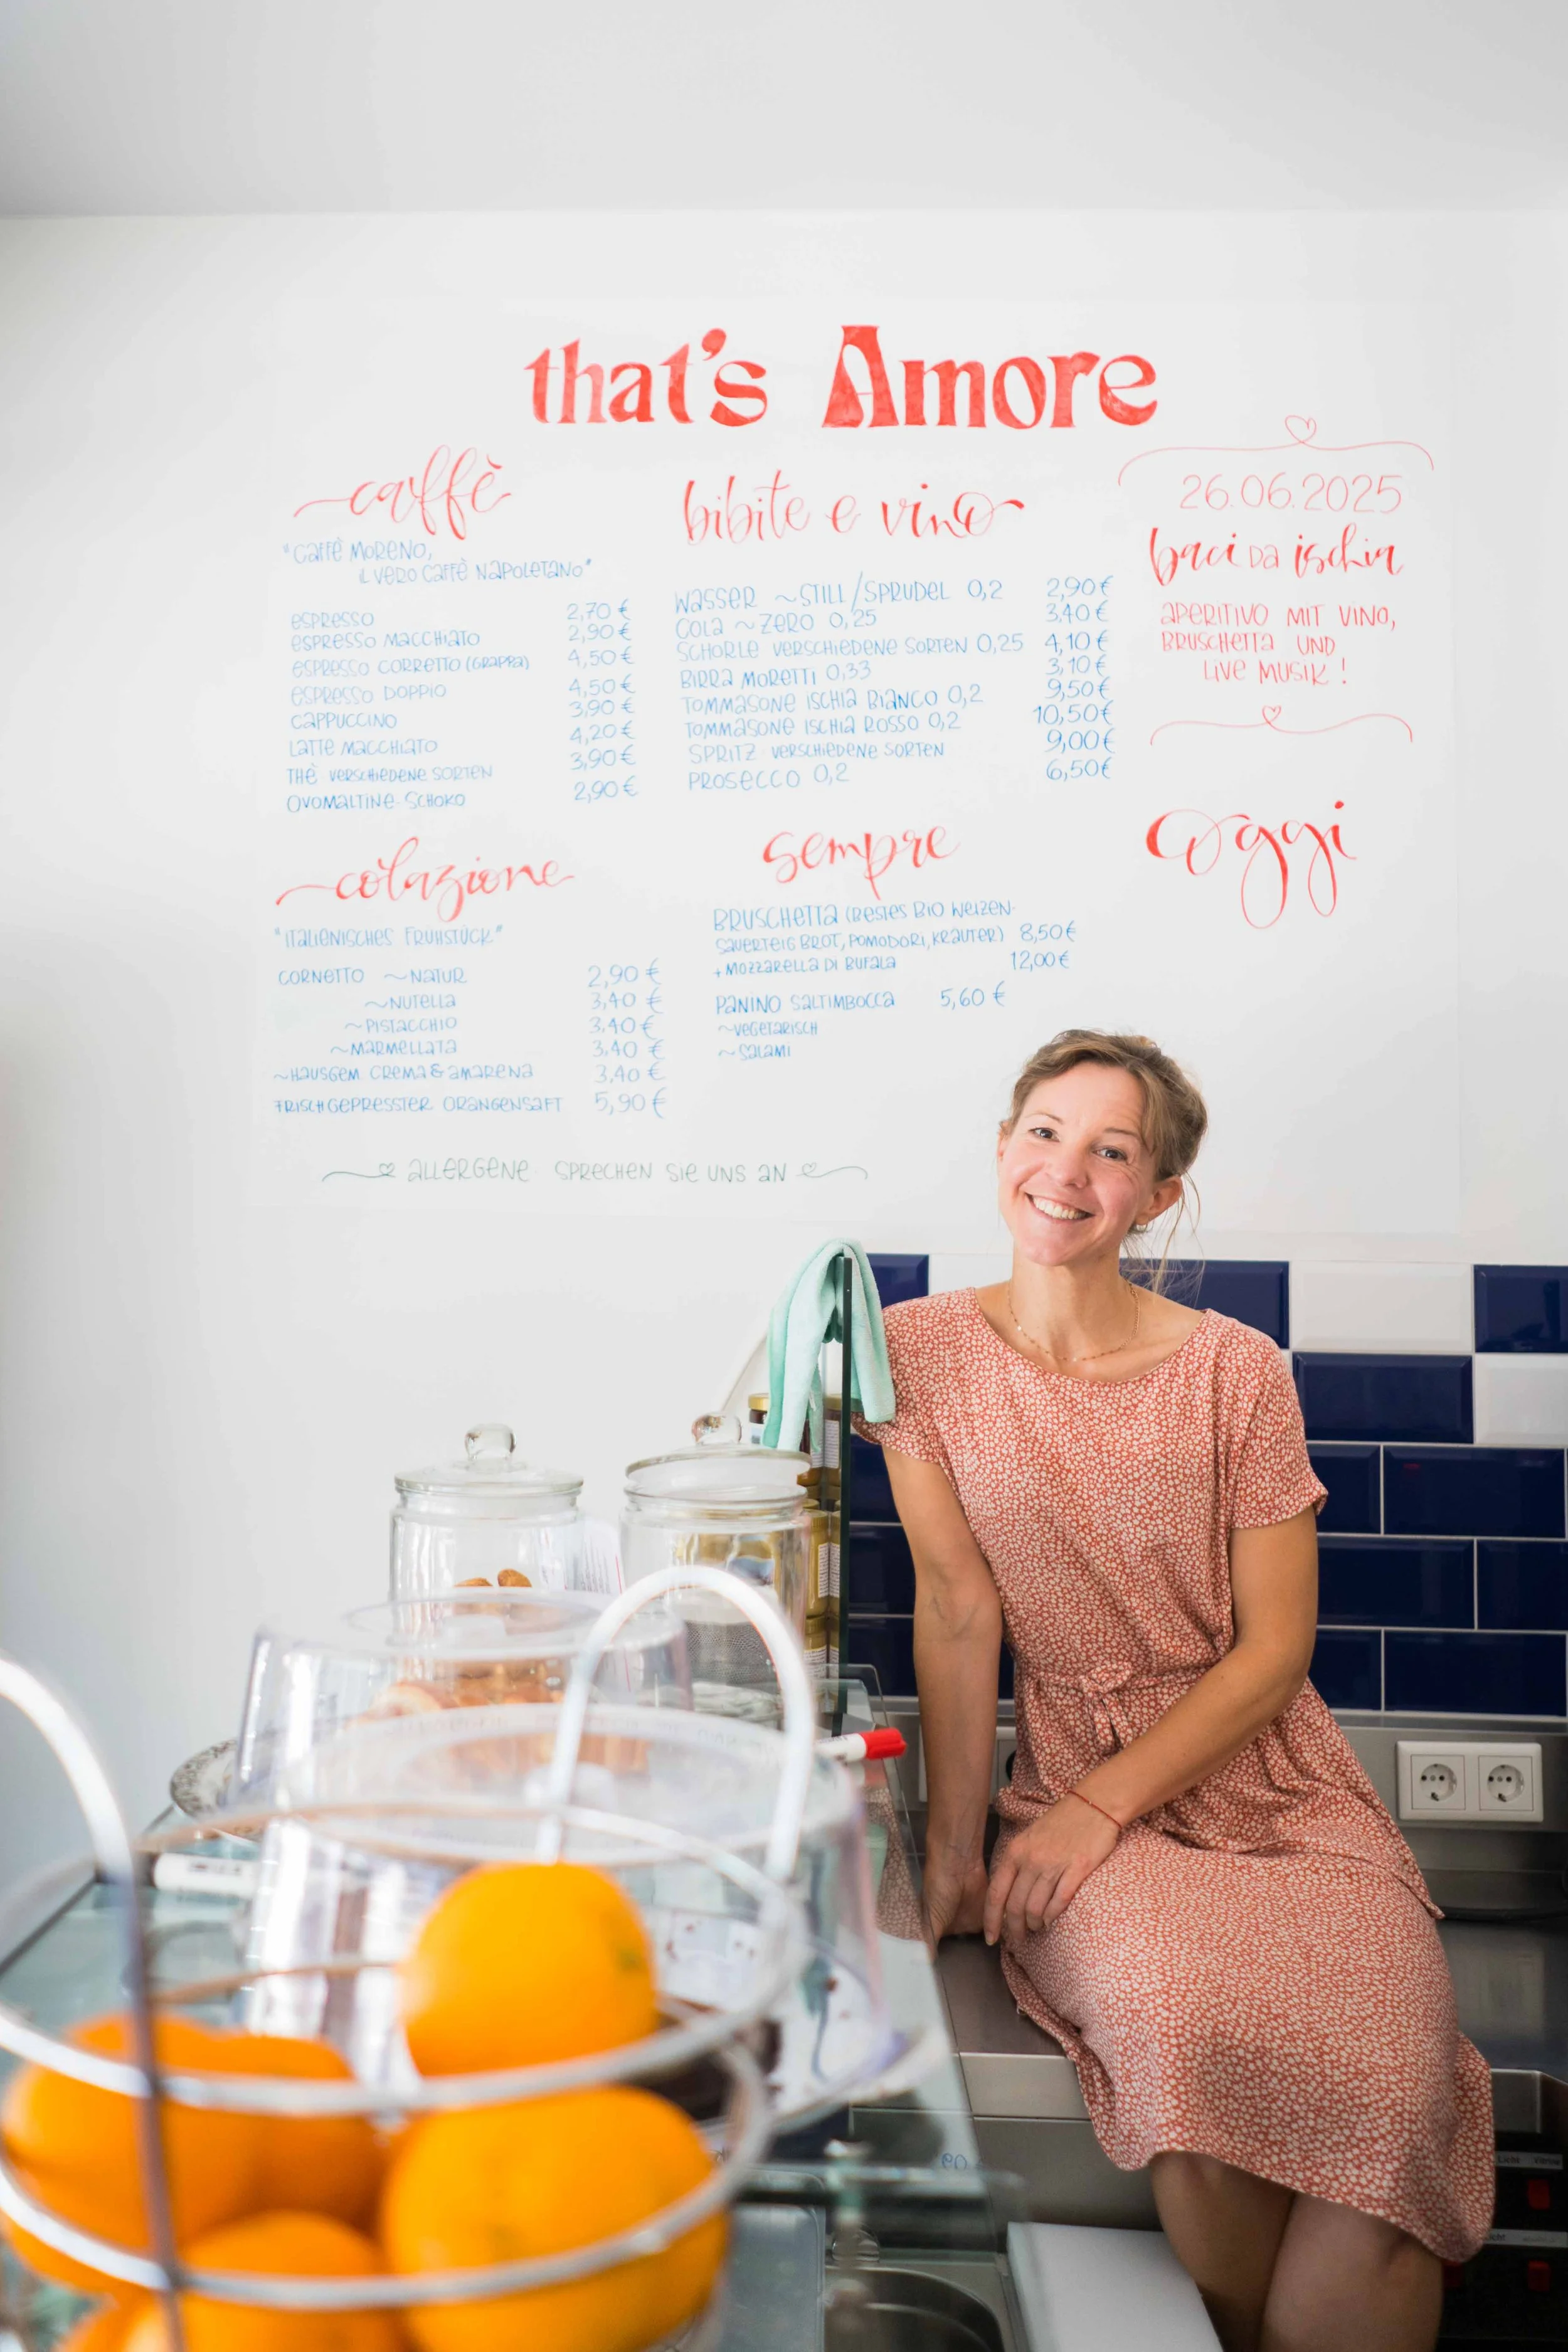 that's Amore
caffè
"Caffè Moreno,
il vero caffè napoletano"
espresso 2,70 €
espresso macchiato 2,90 €
espresso corretto (grappa) 4,50 €
espresso doppio 4,50 €
cappuccino 3,90 €
latte macchiato 4,20 €
thè verschiedene Sorten 3,90 €
Ovomaltine-Schoko 2,90 €
bibite e vino
Wasser ~ still/Sprudel 0,2 2,90 €
Cola ~ Zero 0,25 3,40 €
Schorle verschiedene Sorten 0,25 4,10 €
Birra Moretti 0,33 3,10 €
Tommasone Ischia Bianco 0,2 9,50 €
Tommasone Ischia Rosso 0,2 10,50 €
Spritz verschiedene Sorten 9,00 €
Prosecco 0,2 6,50 €
26.06.2025
baci da ischia
Aperitivo mit Vino,
Bruschetta und
Live Musik!
colazione
"italienisches Frühstück"
Cornetto ~ Natur 2,90 €
~ Nutella 3,40 €
~ Pistacchio 3,40 €
~ Marmellata 3,40 €
~ Hausgem. Crema & Amarena 3,40 €
Frischgepresster Orangensaft 5,90 €
sempre
Bruschetta (bestes Bio Weizen-
Sauerteig Brot, Pomodori, Kräuter) 8,50 €
+ Mozzarella di Bufala 12,00 €
Panino Saltimbocca 5,60 €
~ vegetarisch
~ Salami
oggi
Allergene sprechen Sie uns an